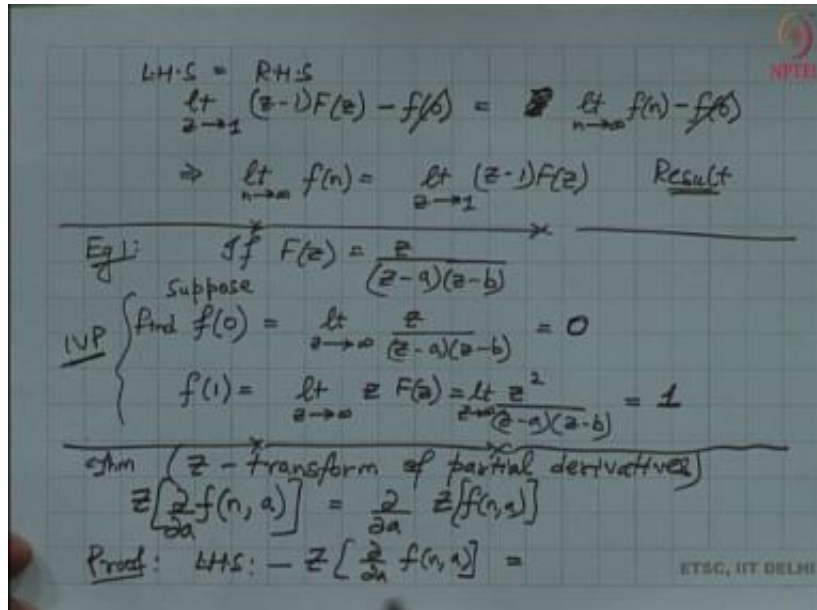 NPTEL
L.H.S = R.H.S
lt z→1 (z-1)F(z) - f(0) = lt n→∞ f(n) - f(0)
⇒ lt n→∞ f(n) = lt z→1 (z-1)F(z) Result
Eg1: If F(z) = z/((z-a)(z-b))
Suppose
IVP find f(0) = lt z→∞ z/((z-a)(z-b)) = 0
f(1) = lt z→∞ z F(z) = lt z→∞ z²/((z-a)(z-b)) = 1
Thm (Z-transform of partial derivatives)
Z[∂/∂a f(n, a)] = ∂/∂a Z[f(n,a)]
Proof: LHS: - Z[∂/∂a f(n,a)] =
ETSC, IIT DELHI